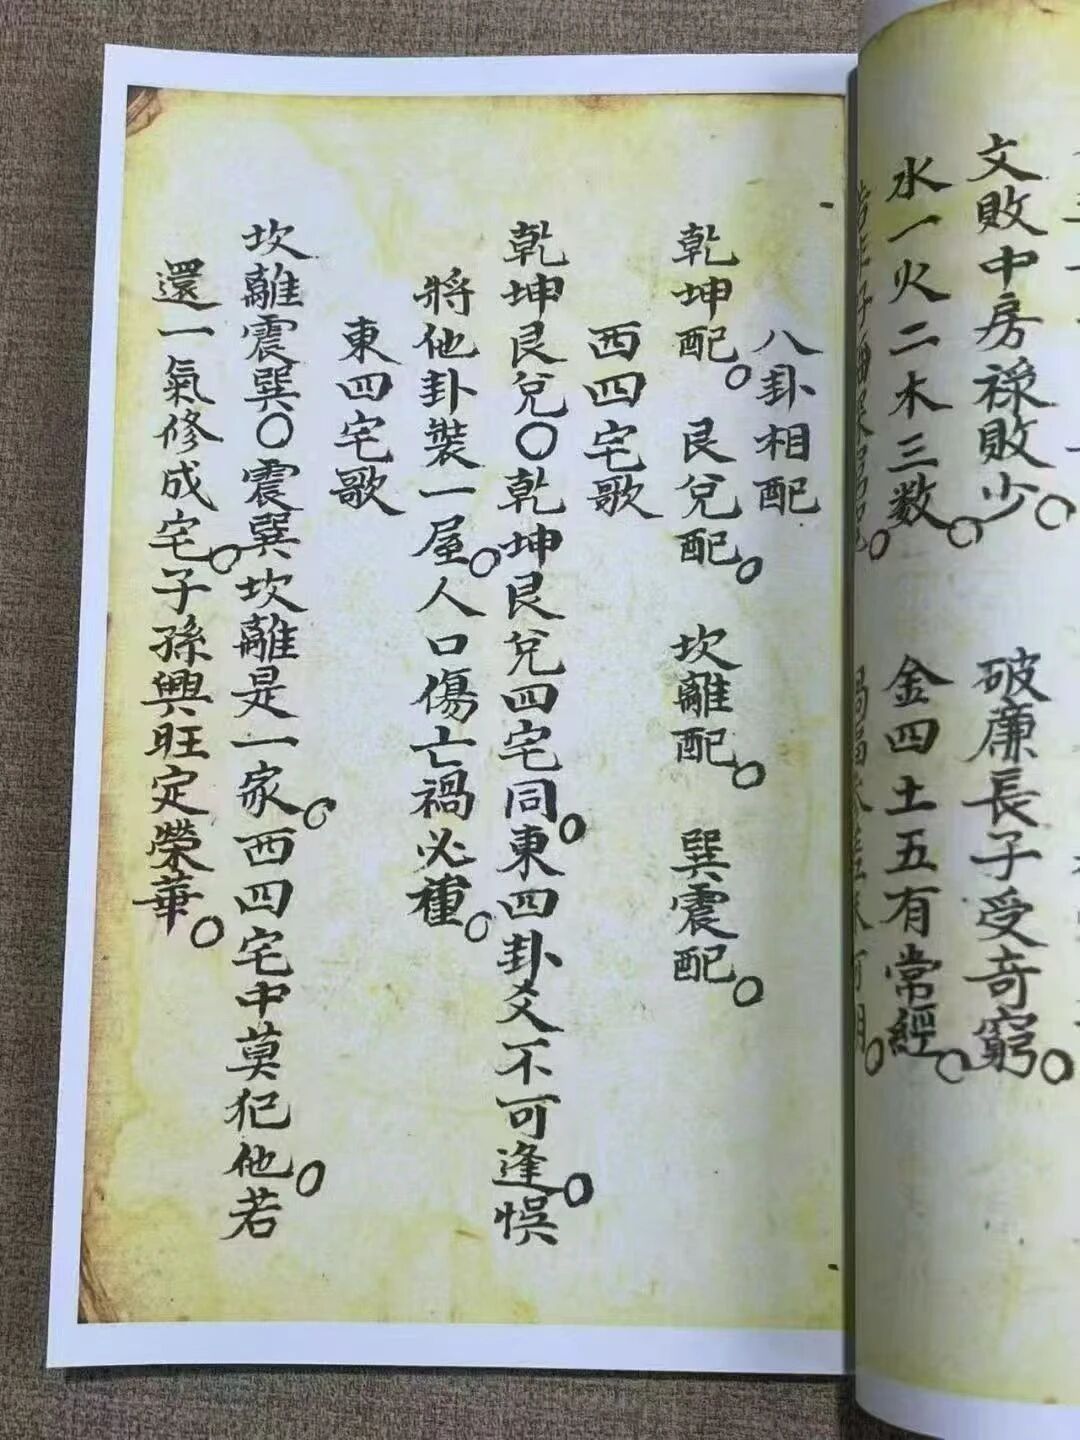 文敗中房祿敗少。 破廉長子受奇窮。
水一火二木三数。 金四土五有常經。
八卦相配
乾坤配。 艮兌配。 坎離配。 巽震配。
西四宅歌
乾坤艮兌〇乾坤艮兌四宅同。東四卦爻不可逢。悮
將他卦裝一屋。人口傷亡禍必種。
東四宅歌
坎離震巽〇震巽坎離是一家。西四宅中莫犯他。若
還一氣修成宅。子孫興旺定榮華。